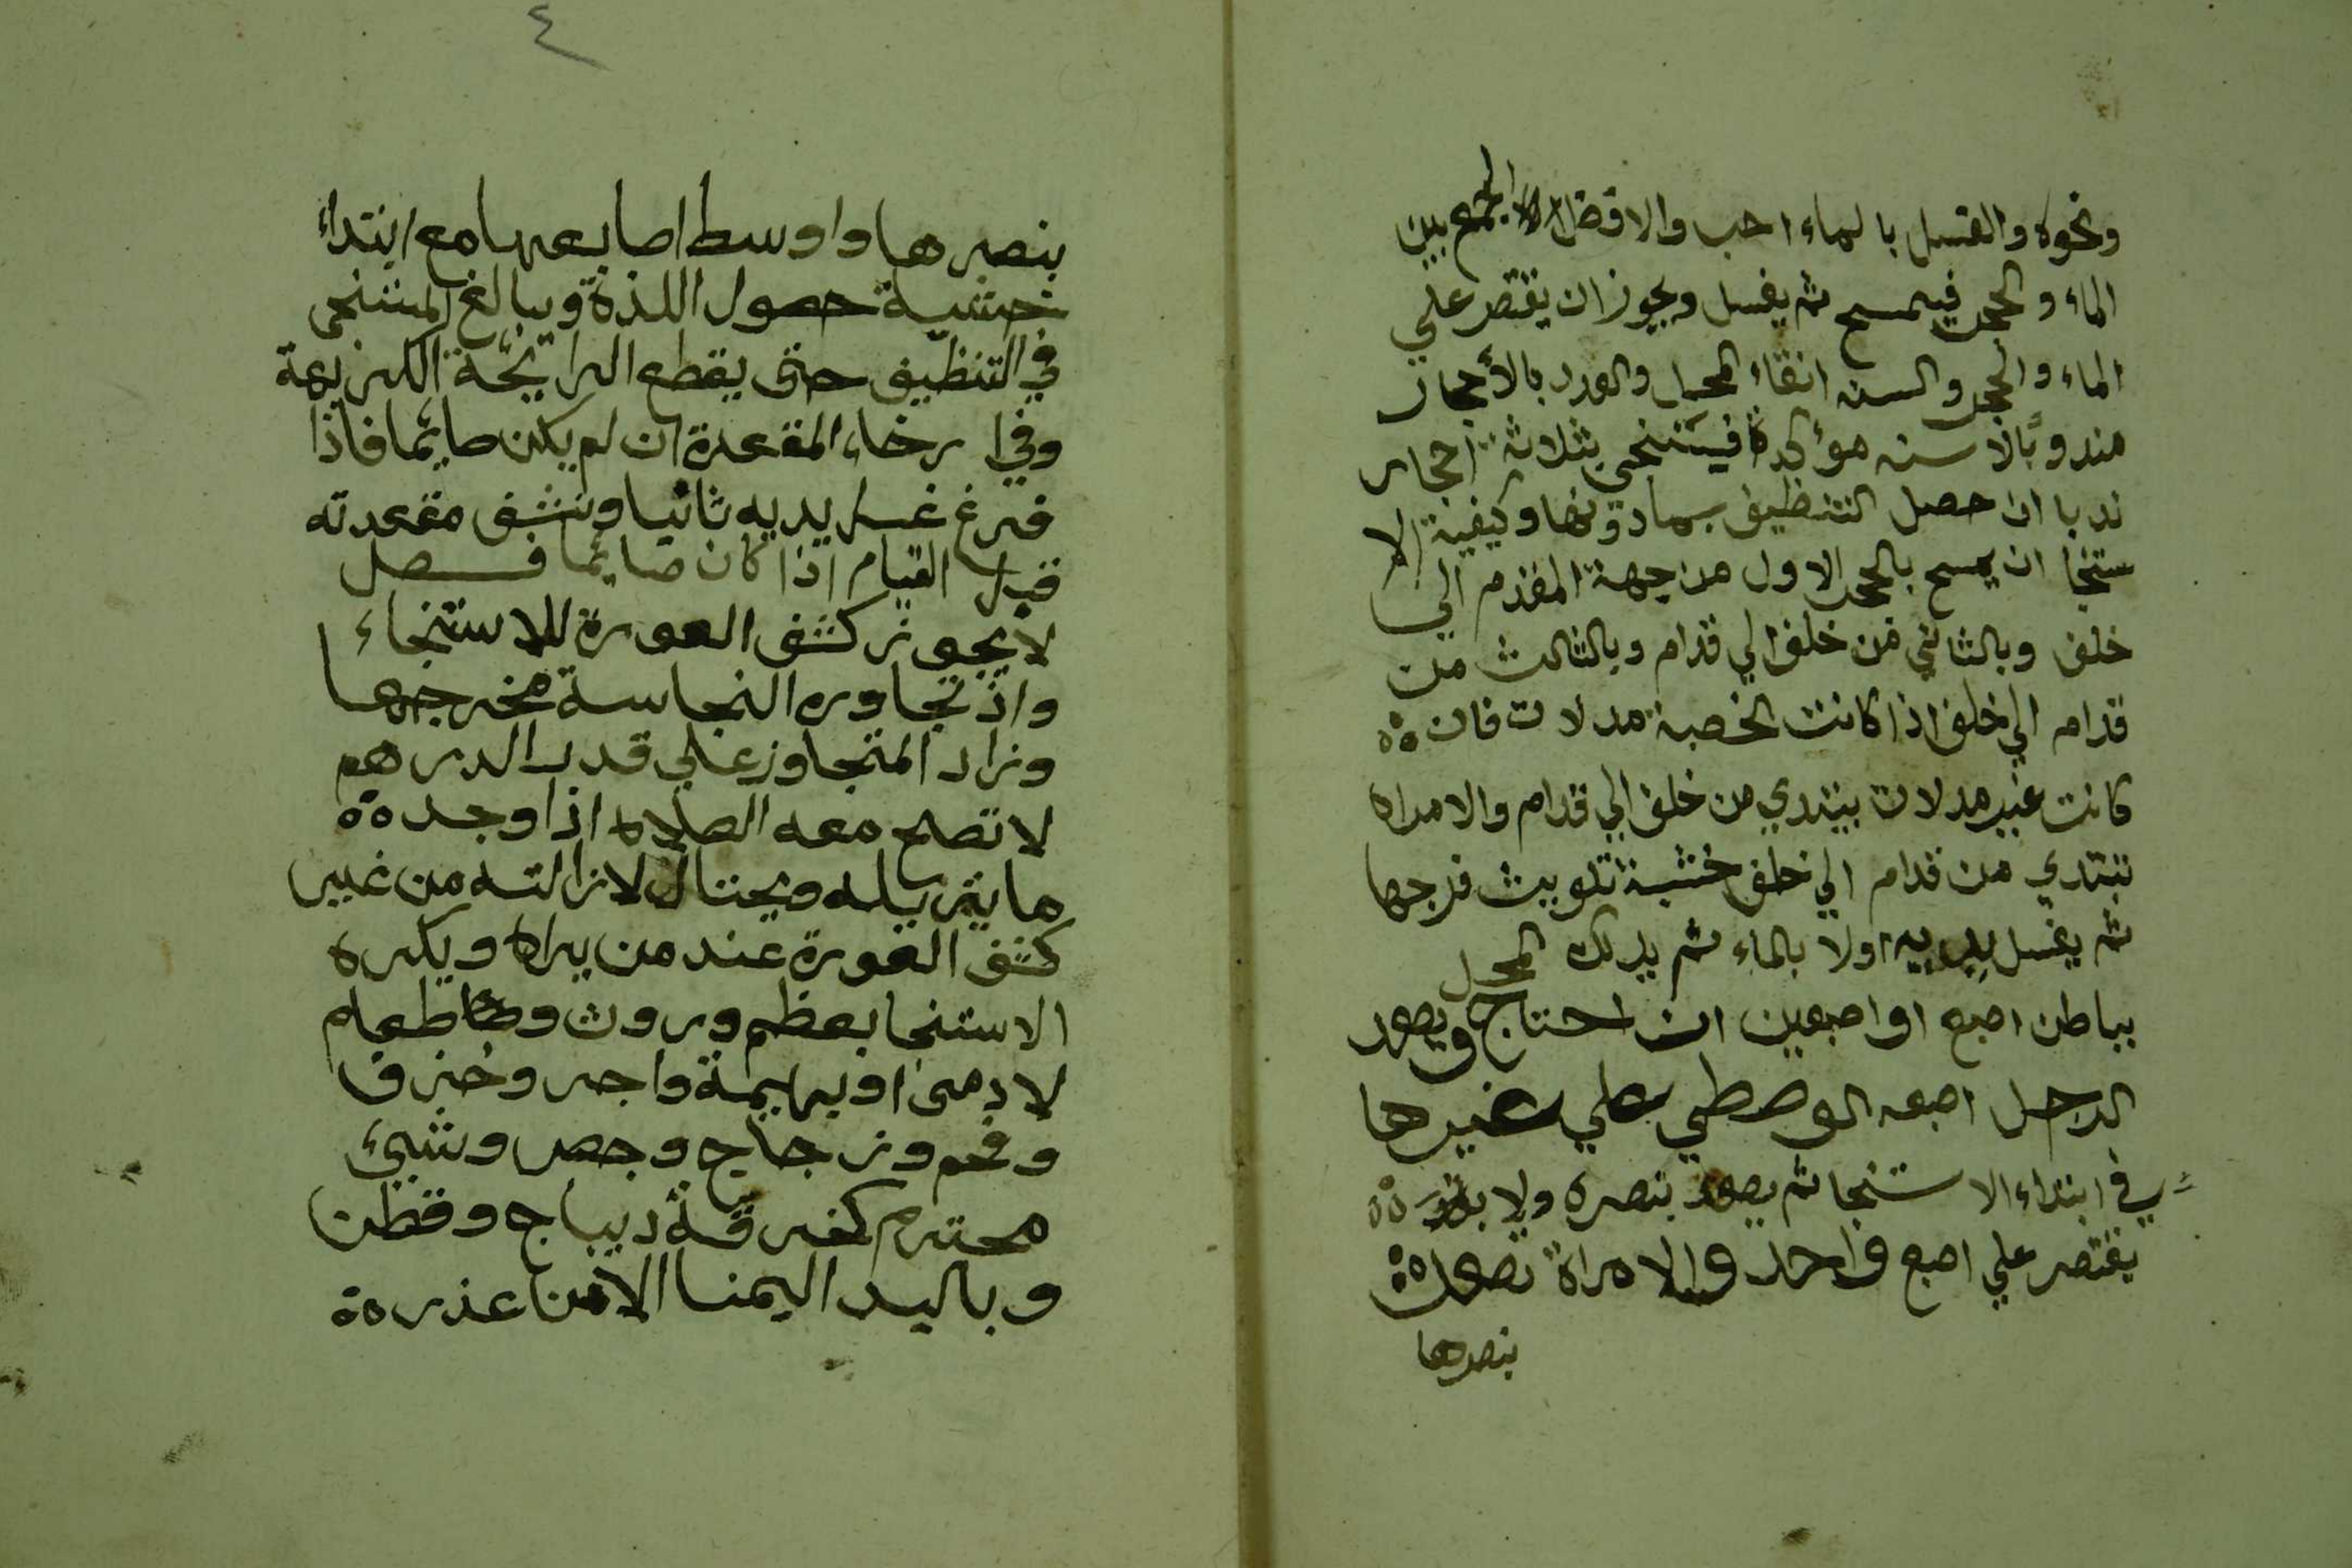 ونحوه والغسل بالماء احب والافضل الجمع بين
الماء والحجر فيمسح ثم يغسل ويجوز ان يقتصر علي
الماء والحجر والسنه انقاء المحل والعدد بالأحجار
مندوبًا لا سنه مؤكدة فيستنجي بثلاثة احجار
ندبا ان حصل التنظيف بمادونها وكيفية الا
ستنجا ان يمسح بالحجر الاول من جهة المقدم الي
خلف وبالثاني من خلف الي قدام وبالثالث من
قدام الي خلف اذا كانت الخصية مدلات فان
كانت غير مدلات يبتدي من خلف الي قدام والامراه
تبتدي من قدام الي خلف خشية تلويث فرجها
ثم يغسل يديه اولا بالماء ثم يدلك المحل
بباطن اصبع او اصبعين ان احتاج ويصعد
الرجل اصبعه الوصطي علي غيرها
في ابتداء الاستنجا ثم يصعد بنصره ولا
يقتصر علي اصبع واحد والامراة تصعد
بنصرها
٤
بنصرها واوسط اصابعها مع ابتداء
خشية حصول اللذة ويبالغ المستنجي
في التنظيف حتى يقطع الرايحة الكريهة
وفي ارخاء المقعدة ان لم يكن صايما فاذا
فرغ غسل يديه ثانيا ونشف مقعدته
قبل القيام اذا كان صايما فصل
لا يجوز كشف العورة للاستنجاء
واذ تجاوره النجاسة مخرجها
وزاد المتجاوز علي قدر الدرهم
لا تصح معه الصلاه اذا وجد
ما يزيله ويحتال لازالته من غير
كشف العورة عند من يراه ويكره
الاستنجا بعظم وروث وطعام
لادمي او بهيمة واجر وخزف
وفحم وزجاج وجص وشيئ
محترم كخرقة ديباج وقطن
وباليد اليمنا الا من عذر